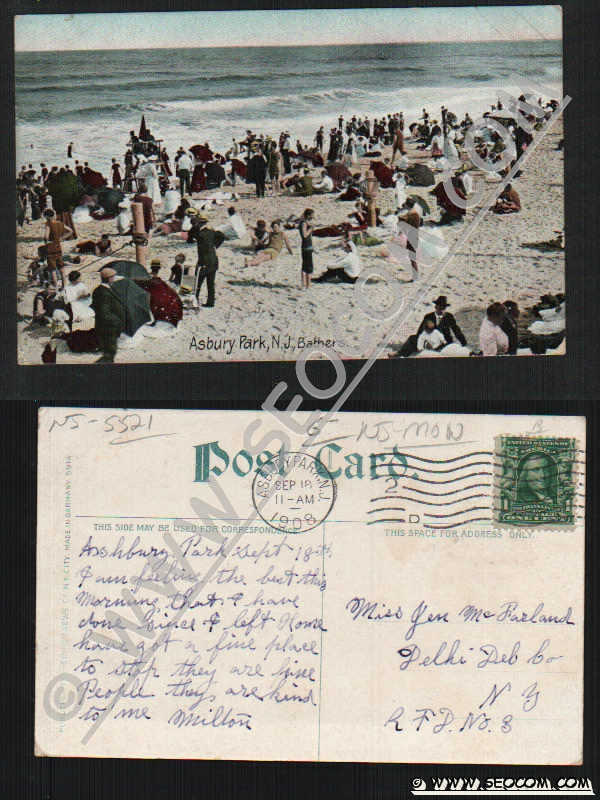 Asbury Park, N.J., Bathers
© WWW.SEOCOM.COM
NJ-5521
NJ-MON
Post Card.
ASBURY PARK, N.J.
SEP 18
11-AM
1908
2
D
UNITED STATES OF AMERICA
FRANKLIN
1 ONE CENT 1
THIS SIDE MAY BE USED FOR CORRESPONDENCE
THIS SPACE FOR ADDRESS ONLY.
N.Y. CITY. MADE IN GERMANY.
Asshbury Park Sept 18th
I am feeling the best this
Morning that I have
done since I left Home
have got a fine place
to stop they are fine
People they are kind
to me Milton
Miss Jen McFarland
Delhi Del Co
N Y
R F D. No. 3
© WWW.SEOCOM.COM